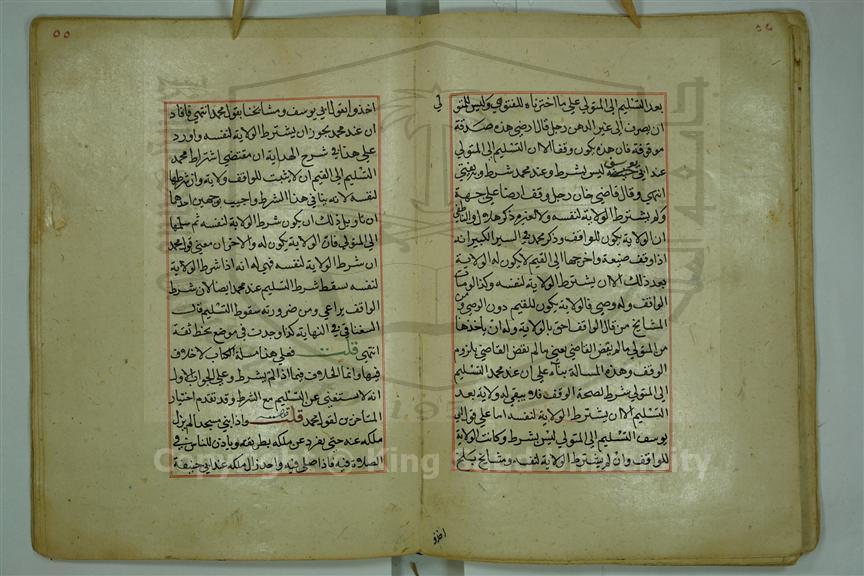 ٥٤
بعد التسليم الى المتولي على ما اخترناه للفتوى وليس للمتو
لي
ان يصرف الى غير الدهن رجل قال ارضي هذه صدقة
موقوفة فان هذه يكون وقفا الا ان التسليم الى المتولي
عند ابي يوسف ليس بشرط وعند محمد شرط وبه يفتى
انتهى وقال قاضي خان رجل وقف ارضا على جهة
ولم يشترط الولاية لنفسه ولا لغيره ذكر هلال والناطفي
ان الولاية يكون للواقف وذكر محمد في السير الكبير انه
اذا وقف ضيعة واخرجها الى القيم لا يكون له الولاية
بعد ذلك الا ان يشترط الولاية لنفسه وكذا لو مات
الواقف وله وصي فالولاية يكون للقيم دون الوصي ومن
المشايخ من قال الواقف احق بالولاية وله ان يأخذها
من المتولي ما لم يقض القاضي يعني ما لم يقض القاضي بلزوم
الوقف وهذه المسالة بناء على ان عند محمد التسليم
الى المتولي شرط لصحة الوقف فلا يبقى له ولاية بعد
التسليم الا ان يشترط الولاية لنفسه اما على قول ابي
يوسف التسليم الى المتولي ليس بشرط وكانت الولاية
للواقف وان لم يشترط الولاية لنفسه ومشايخ بلخ
اخذوا
٥٥
اخذوا بقول ابي يوسف ومشايخنا بقول محمد انتهى فافاد
ان عند محمد يجوز ان يشترط الولاية لنفسه واورد
على هذا في شرح الهداية ان مقتضى اشتراط محمد
التسليم الى القيم ان لا يثبت للواقف ولاية وان شرطها
لنفسه لانه ينافي هذا الشرط واجيب بوجهين احدهما
ان تاويل ذلك ان يكون شرط الولاية لنفسه ثم سلمها
الى المتولي فان الولاية يكون له والاخر ان معنى قول محمد
ان شرط الولاية لنفسه فهي له انه اذا شرط الولاية
لنفسه سقط شرط التسليم عند محمد ايضا لان شرط
الواقف يراعى ومن ضرورته سقوط التسليم قال
السغناقي في النهاية كذا وجدت في موضع بخط ثقة
انتهى قلت فعلى هذا مسلة الكتاب لا خلاف
فيها وانما الخلاف فيما اذا لم يشترط وعلى الجواب الاول
انه لا يستغنى عن التسليم مع الشرط وقد تقدم اختيار
المتاخرين لقول محمد قلت واذا بنى مسجدا لم يزل
ملكه عنه حتى يفرد عن ملكه بطريقه وياذن للناس في
الصلاة فيه فاذا صلى فيه واحد زال ملكه عند ابي حنيفة
Copyright © King Saud University